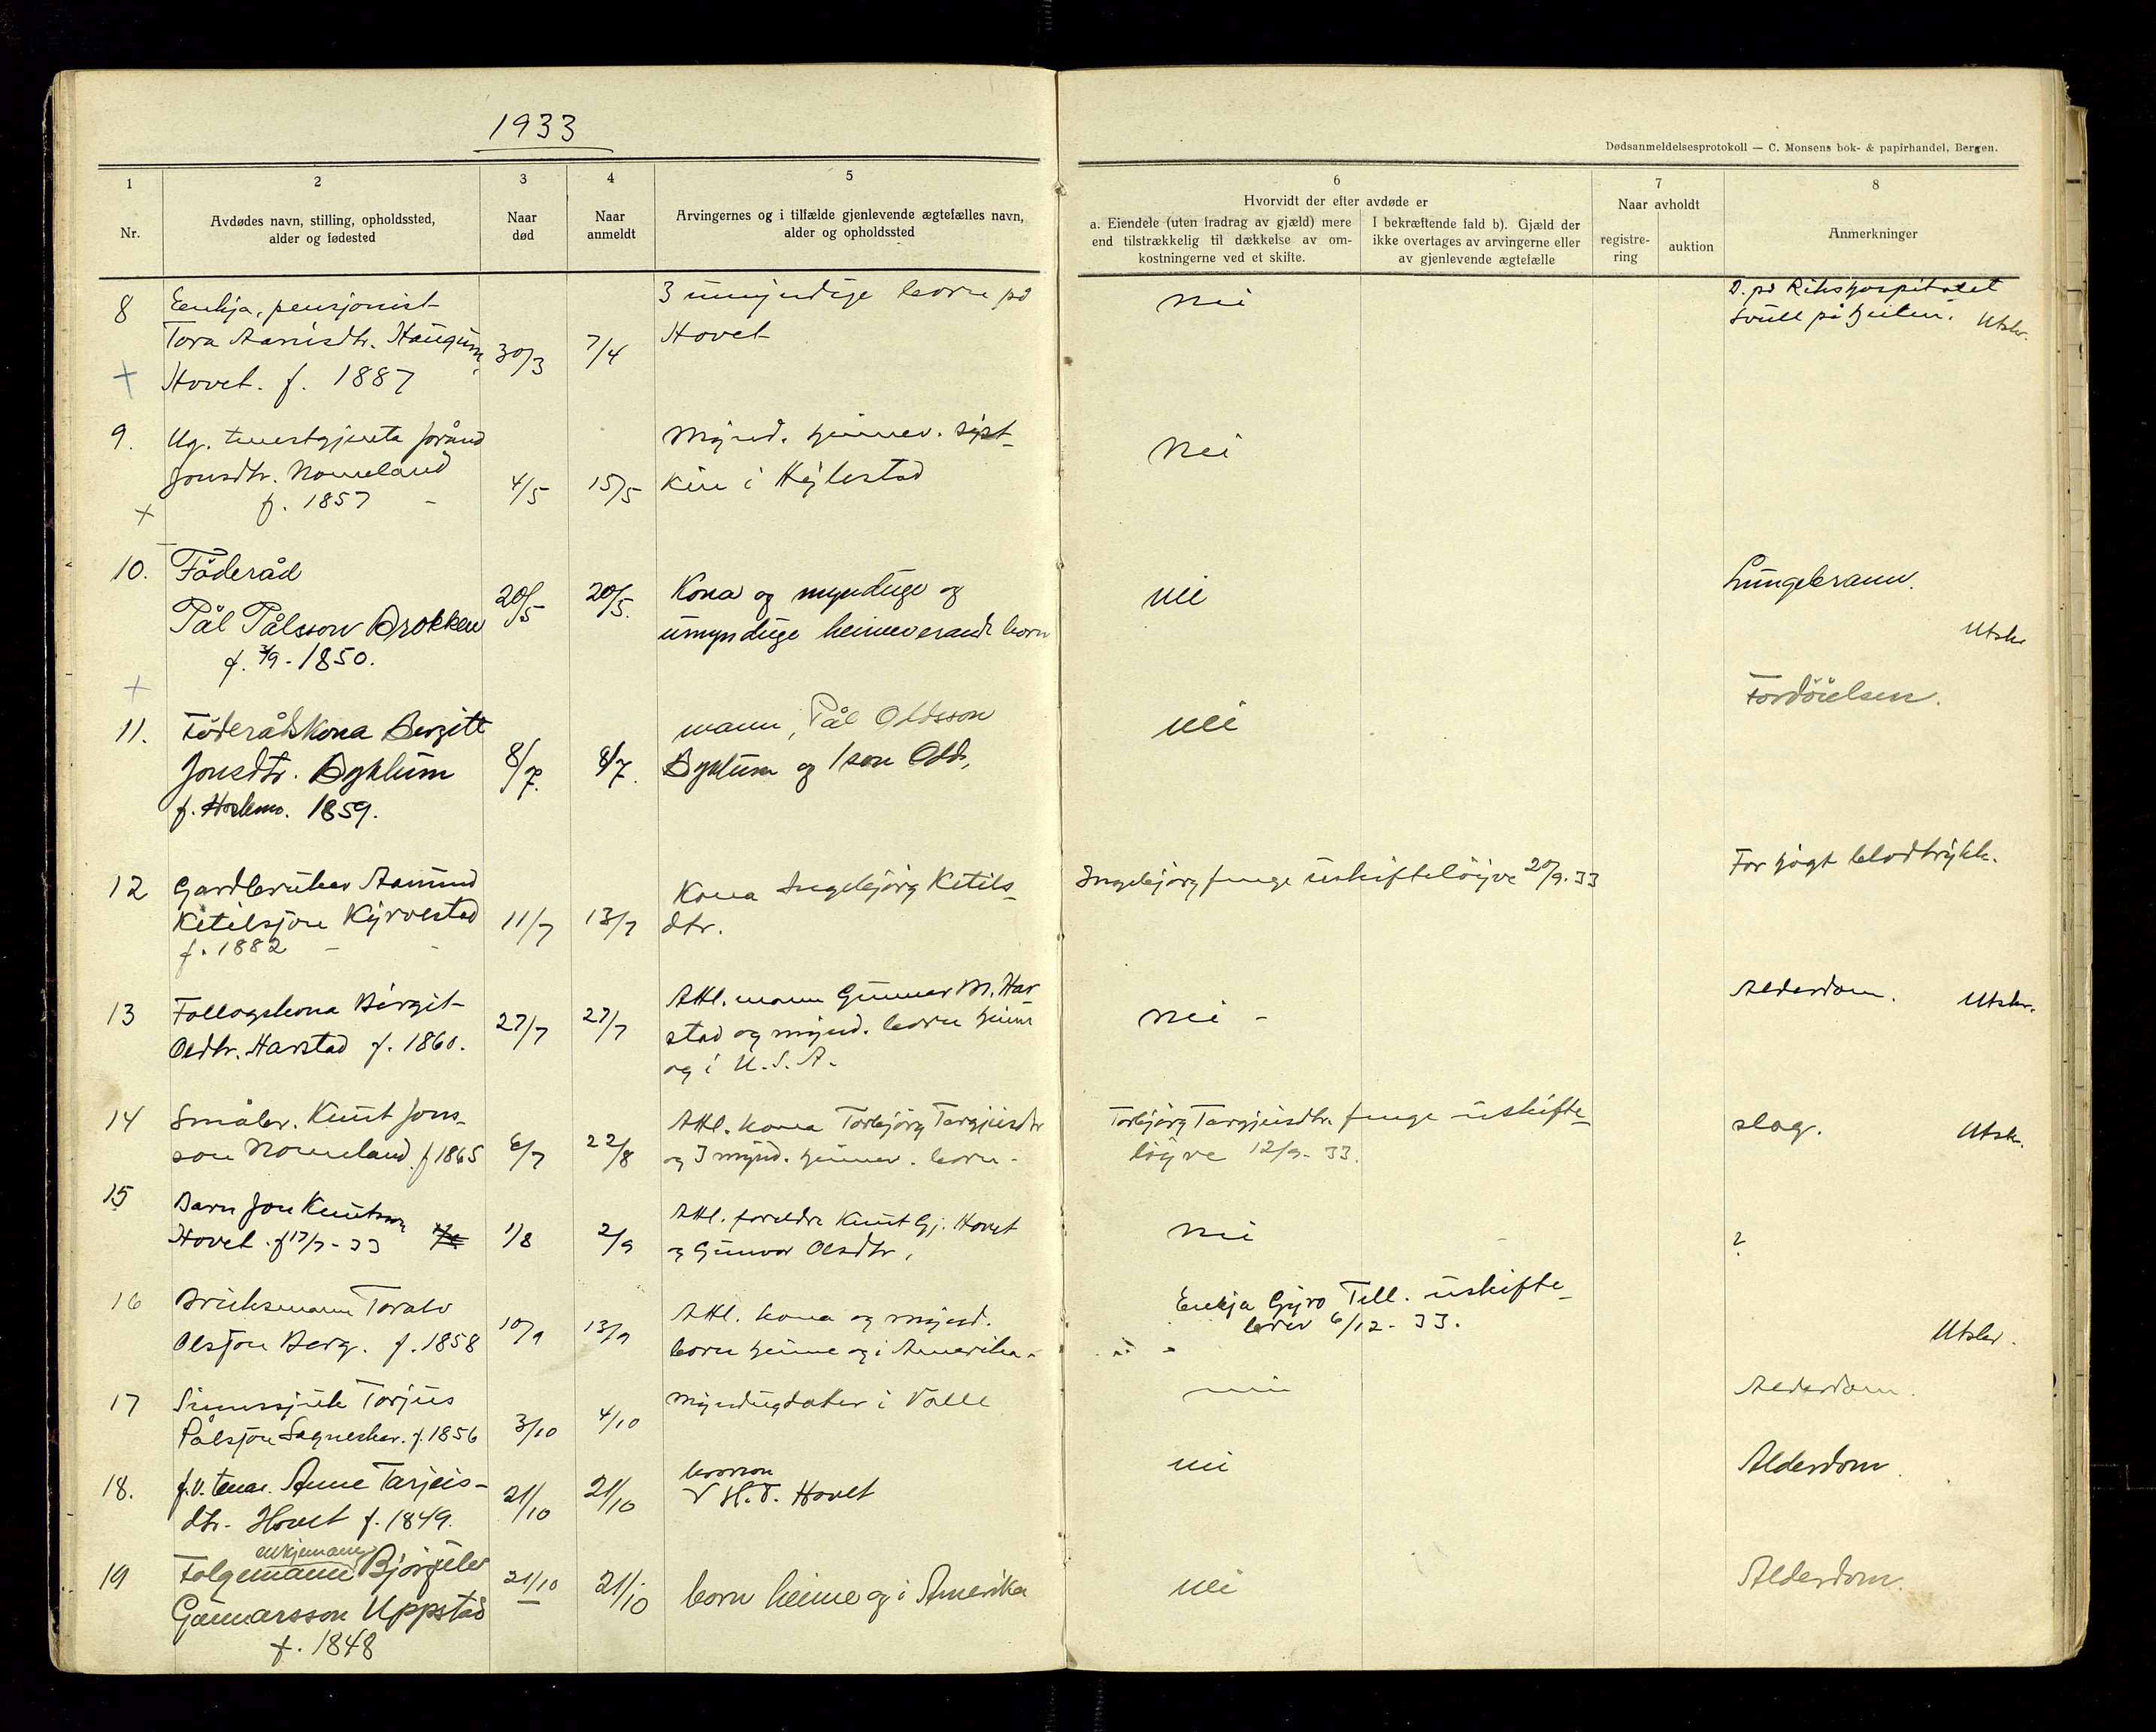 1933
Dødsanmeldelsesprotokoll — C. Monsens bok- & papirhandel, Bergen.
1
2
3
4
5
6
7
8
Nr.
Avdødes navn, stilling, opholdssted,
alder og fødested
Naar
død
Naar
anmeldt
Arvingernes og i tilfælde gjenlevende ægtefælles navn,
alder og opholdssted
Hvorvidt der efter avdøde er
a. Eiendele (uten fradrag av gjæld) mere
end tilstrækkelig til dækkelse av om-
kostningerne ved et skifte.
I bekræftende fald b). Gjæld der
ikke overtages av arvingerne eller
av gjenlevende ægtefælle
Naar avholdt
registre-
ring
auktion
Anmerkninger
8
Enkja, pensjonist
Tora Aanisdtr. Haugum,
Hovet. f. 1887
30/3
7/4
3 umyndige born på
Hovet
nei
D. på Rikshospitalet
Svull på heilen.
Utskr.
9.
Ug. tenestgjenta
Jonsdtr. Nomeland
f. 1857
4/5
15/5
Mynd. heimev. syst-
kin i Hylestad
Nei
10.
Föderåd
Pål Pålsson Brokken
f. 3/9 - 1850.
20/5
20/5.
Kona og myndige og
umyndige heimeverande born
nei
Lungebrann.
Utskr
11.
Föderådskona Bergitt
Jonsdtr. Byklum
f. Hoslemo. 1859.
8/7.
8/7.
mann, Pål Oldsson
Byklum og 1 son Old,
nei
Fordöielsen.
12
Gardbrukar Aamund
Ketilsjon Kyrvestad
f. 1882
11/7
13/7
Kona Ingebjörg Ketils-
dtr.
Ingebjörg fenge uskifteløyve 20/9. 33
For högt blodtrykk.
13
Follogskona Birgit
Oldtr. Harstad f. 1860.
27/7
27/7
Attl. mann Gunnar M. Har
stad og mynd. born heime
og i U.S.A.
nei -
Alderdom.
Utskr.
14
Småbr. Knut Jons-
son Nomeland f 1865
6/7
22/8
Attl. kona Torbjörg Targjeisdtr
og 3 mynd. heimev. born -
Torbjörg Targjeisdtr. fenge uskifte-
löyve 12/9 - 33.
slag.
Utsk.
15
Barn Jon Knutson
Hovet. f 17/7 - 33
1/8
2/9
Attl. foreldre Knut Gj. Hovet
og Gunvor Olsdtr,
nei
?
16
Bruksmann Toralv
Olsjon Berg. f. 1858
10/9
13/9
Attl. kona og mynd.
born heime og i Amerika -
Enkja Gyro Tell. uskifte-
brev 6/12 - 33.
Utskr.
17
Sinnssjuk Torjus
Pålsjon Sagneskar. f. 1856
3/10
4/10
myndug dotter i Valle
nei
Alderdom.
18.
f.v. tenar. Anne Tarjeis-
dtr. Hovet f. 1849.
21/10
21/10
H. T. Hovet
nei
Alderdom
19
enkjemann
Folgemann Bjørgulv
Gunnarsson Uppstad
f. 1848
21/10
21/10
born heime og i Amerika
nei
Alderdom.